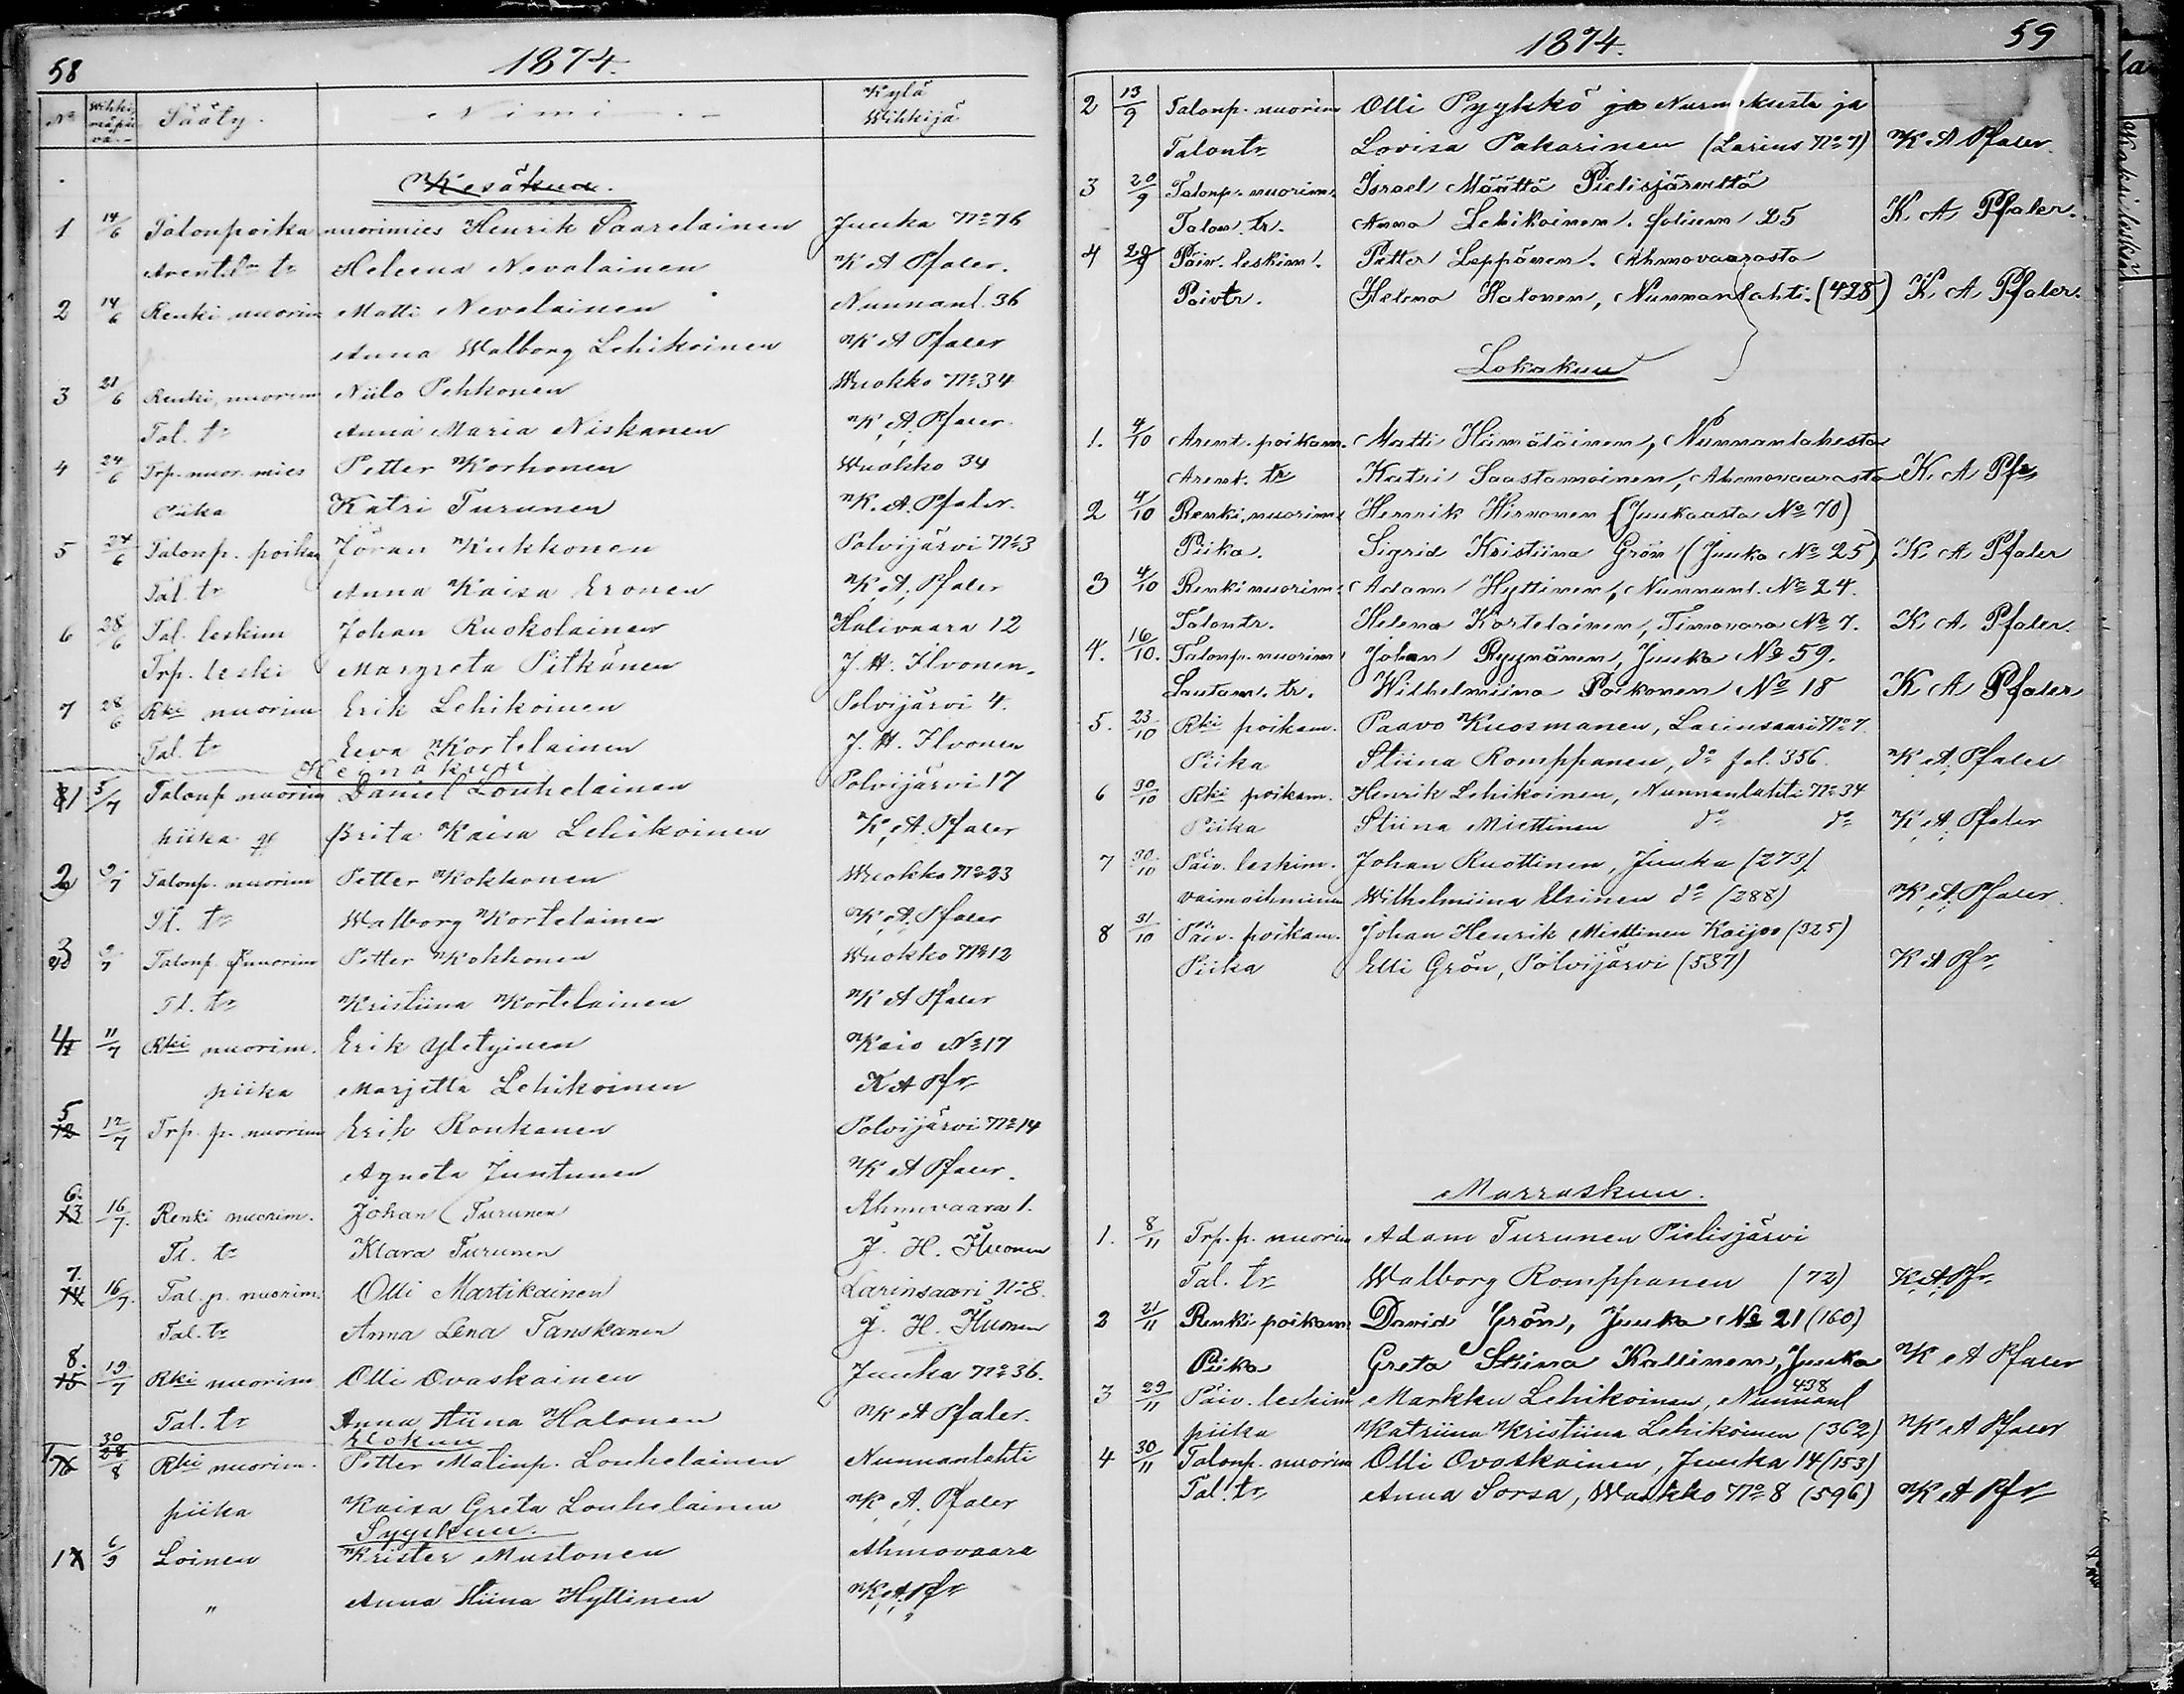 58
1874.
No Wihkimäpäivä. Sääty. Nimi. Kylä Wihkijä
Kesäkuu.
1 14/6 Talonpoika nuorimies Henrik Saarelainen Juuka No 76
Arent. tr Heleena Nevalainen K A Pfaler.
2 14/6 Renki nuorim Matti Nevalainen Nunnanl. 36
Anna Walborg Lehikoinen K A Pfaler
3 21/6 Renki, nuorim Niilo Pehkonen Wuokko No 34
Tal. tr Anna Maria Niskanen K. A. Pfaler.
4 24/6 Trp. nuor. mies Petter Korhonen Wuokko 34
Piika Katri Turunen K. A. Pfaler.
5 24/6 Talonp. poikam Jöran Kukkonen Polvijärvi No 3
Tal. tr Anna Kaisa Eronen K. A. Pfaler
6 28/6 Tal. leskim Johan Ruokolainen Halivaara 12
Trp. leski Margreta Pitkänen J. H. Ilvonen.
7 28/6 Rki nuorim Erik Lehikoinen Polvijärvi 4.
Tal. tr Eeva Kortelainen J. H. Ilvonen
Heinäkuu
1 5/7 Talonp nuorim Daniel Louhelainen Polvijärvi 17
piika Brita Kaisa Lehikoinen K. A. Pfaler
2 9/7 Talonp. nuorim Petter Kokkonen Wuokko No 23
Tl. tr Walborg Kortelainen K. A. Pfaler
3 9/7 Talonp. nuorim Petter Kokkonen Wuokko No 12
Tl. tr Kristiina Kortelainen K A Pfaler
4 11/7 Rki nuorim. Erik Yletyinen Kaio No 17
piika Marjetta Lehikoinen K A Pfr
5 12 12/7 Trp. p. nuorim Erik Ronkanen Polvijärvi No 14
Agneta Juntunen K A Pfaler.
6. 13 16/7. Renki nuorim. Johan Turunen Ahmovaara 1.
Tl. tr Klara Turunen J. H. Ilvonen
7. 14 16/7. Tal. p. nuorim. Olli Martikainen Larinsaari No 8.
Tal. tr Anna Lena Tanskanen J. H. Ilvonen
8. 15 19/7 Rki nuorim Olli Ovaskainen Juuka No 36.
Tal. tr Anna Stiina Halonen K A Pfaler.
Elokuu
1 16 30 28/8 Rki nuorim. Petter Malinp. Louhelainen Nunnanlahti
piika Kaisa Greta Louhelainen K. A. Pfaler
Syyskuu.
17 6/9 Loinen Krister Mustonen Ahmovaara
" Anna Stiina Hyttinen K. A. Pfr
1874.
59
2 13/9 Talonp. nuorim Olli Pyykkö ja Nurmeksesta ja
Talontr Lovisa Pakarinen (Larins No 7) K A Pfaler.
3 20/9 Talonp. nuorim. Israel Määttä Pielisjärveltä
Talon. tr. Anna Lehikoinen. folium 25 K. A Pfaler.
4 20/9 Päiv. leskim. Petter Leppänen. Ahmovaarasta
Päivtr. Helena Halonen, Nunnanlahti. (428) K. A Pfaler.
Lokakuu
1. 4/10 Arent. poikam. Matti Hiimäläinen, Nunnanlahesta
Arent. tr Katri Saastamoinen, Ahmovaarasta K. A Pfr
2 4/10 Renki, nuorim. Henrik Hirvonen (Juukaasta No 70)
Piika. Sigrid Kristiina Grön (Juuka No 25) K. A Pfaler
3 4/10 Renki nuorim. Adam Hyttinen, Nunnanl. No 24.
Talontr. Helena Kortelainen, Timovara No 7. K. A. Pfaler.
4. 16/10. Talonp. nuorim. Johan Ryynänen, Juuka No 59.
Lautam. tr. Wilhelmiina Poikonen No 18 K A Pfaler
5. 23/10 Rki poikam. Paavo Kuosmanen, Larinsaari No 7.
Piika Stiina Romppanen, do fol. 356. K. A. Pfaler
6 30/10 Rki poikam. Henrik Lehikoinen, Nunnanlahti No 34
Piika Stiina Miettinen do do K. A. Pfaler
7 30/10 Päiv. leskim. Johan Ruottinen, Juuka (273)
vaimoihminen Wilhelmiina do (288) K. A. Pfaler.
8 31/10 Päiv. poikam. Johan Henrik Miettinen Kaijoo (325)
Piika Elli Grön, Polvijärvi (537) K A Pfr
Marraskuu.
1. 8/11 Trp. p. nuorim Adam Turunen Pielisjärvi
Tal. tr Walborg Romppanen (72) K. A. Pfr
2 21/11 Renki poikam. David Grön, Juuka No 21 (160)
Piika Greta Stiina Kallinen, Juuka K A Pfaler
3 29/11 Päiv. leskim Markku Lehikoinen, Nunnanl 438
piika Katriina Kristiina Lehikoinen (362) K A Pfaler
4 30/11 Talonp. nuorim Olli Ovaskainen, Juuka 14 (153)
Tal. tr Anna Sorsa, Wuokko No 8 (596) K A Pfr